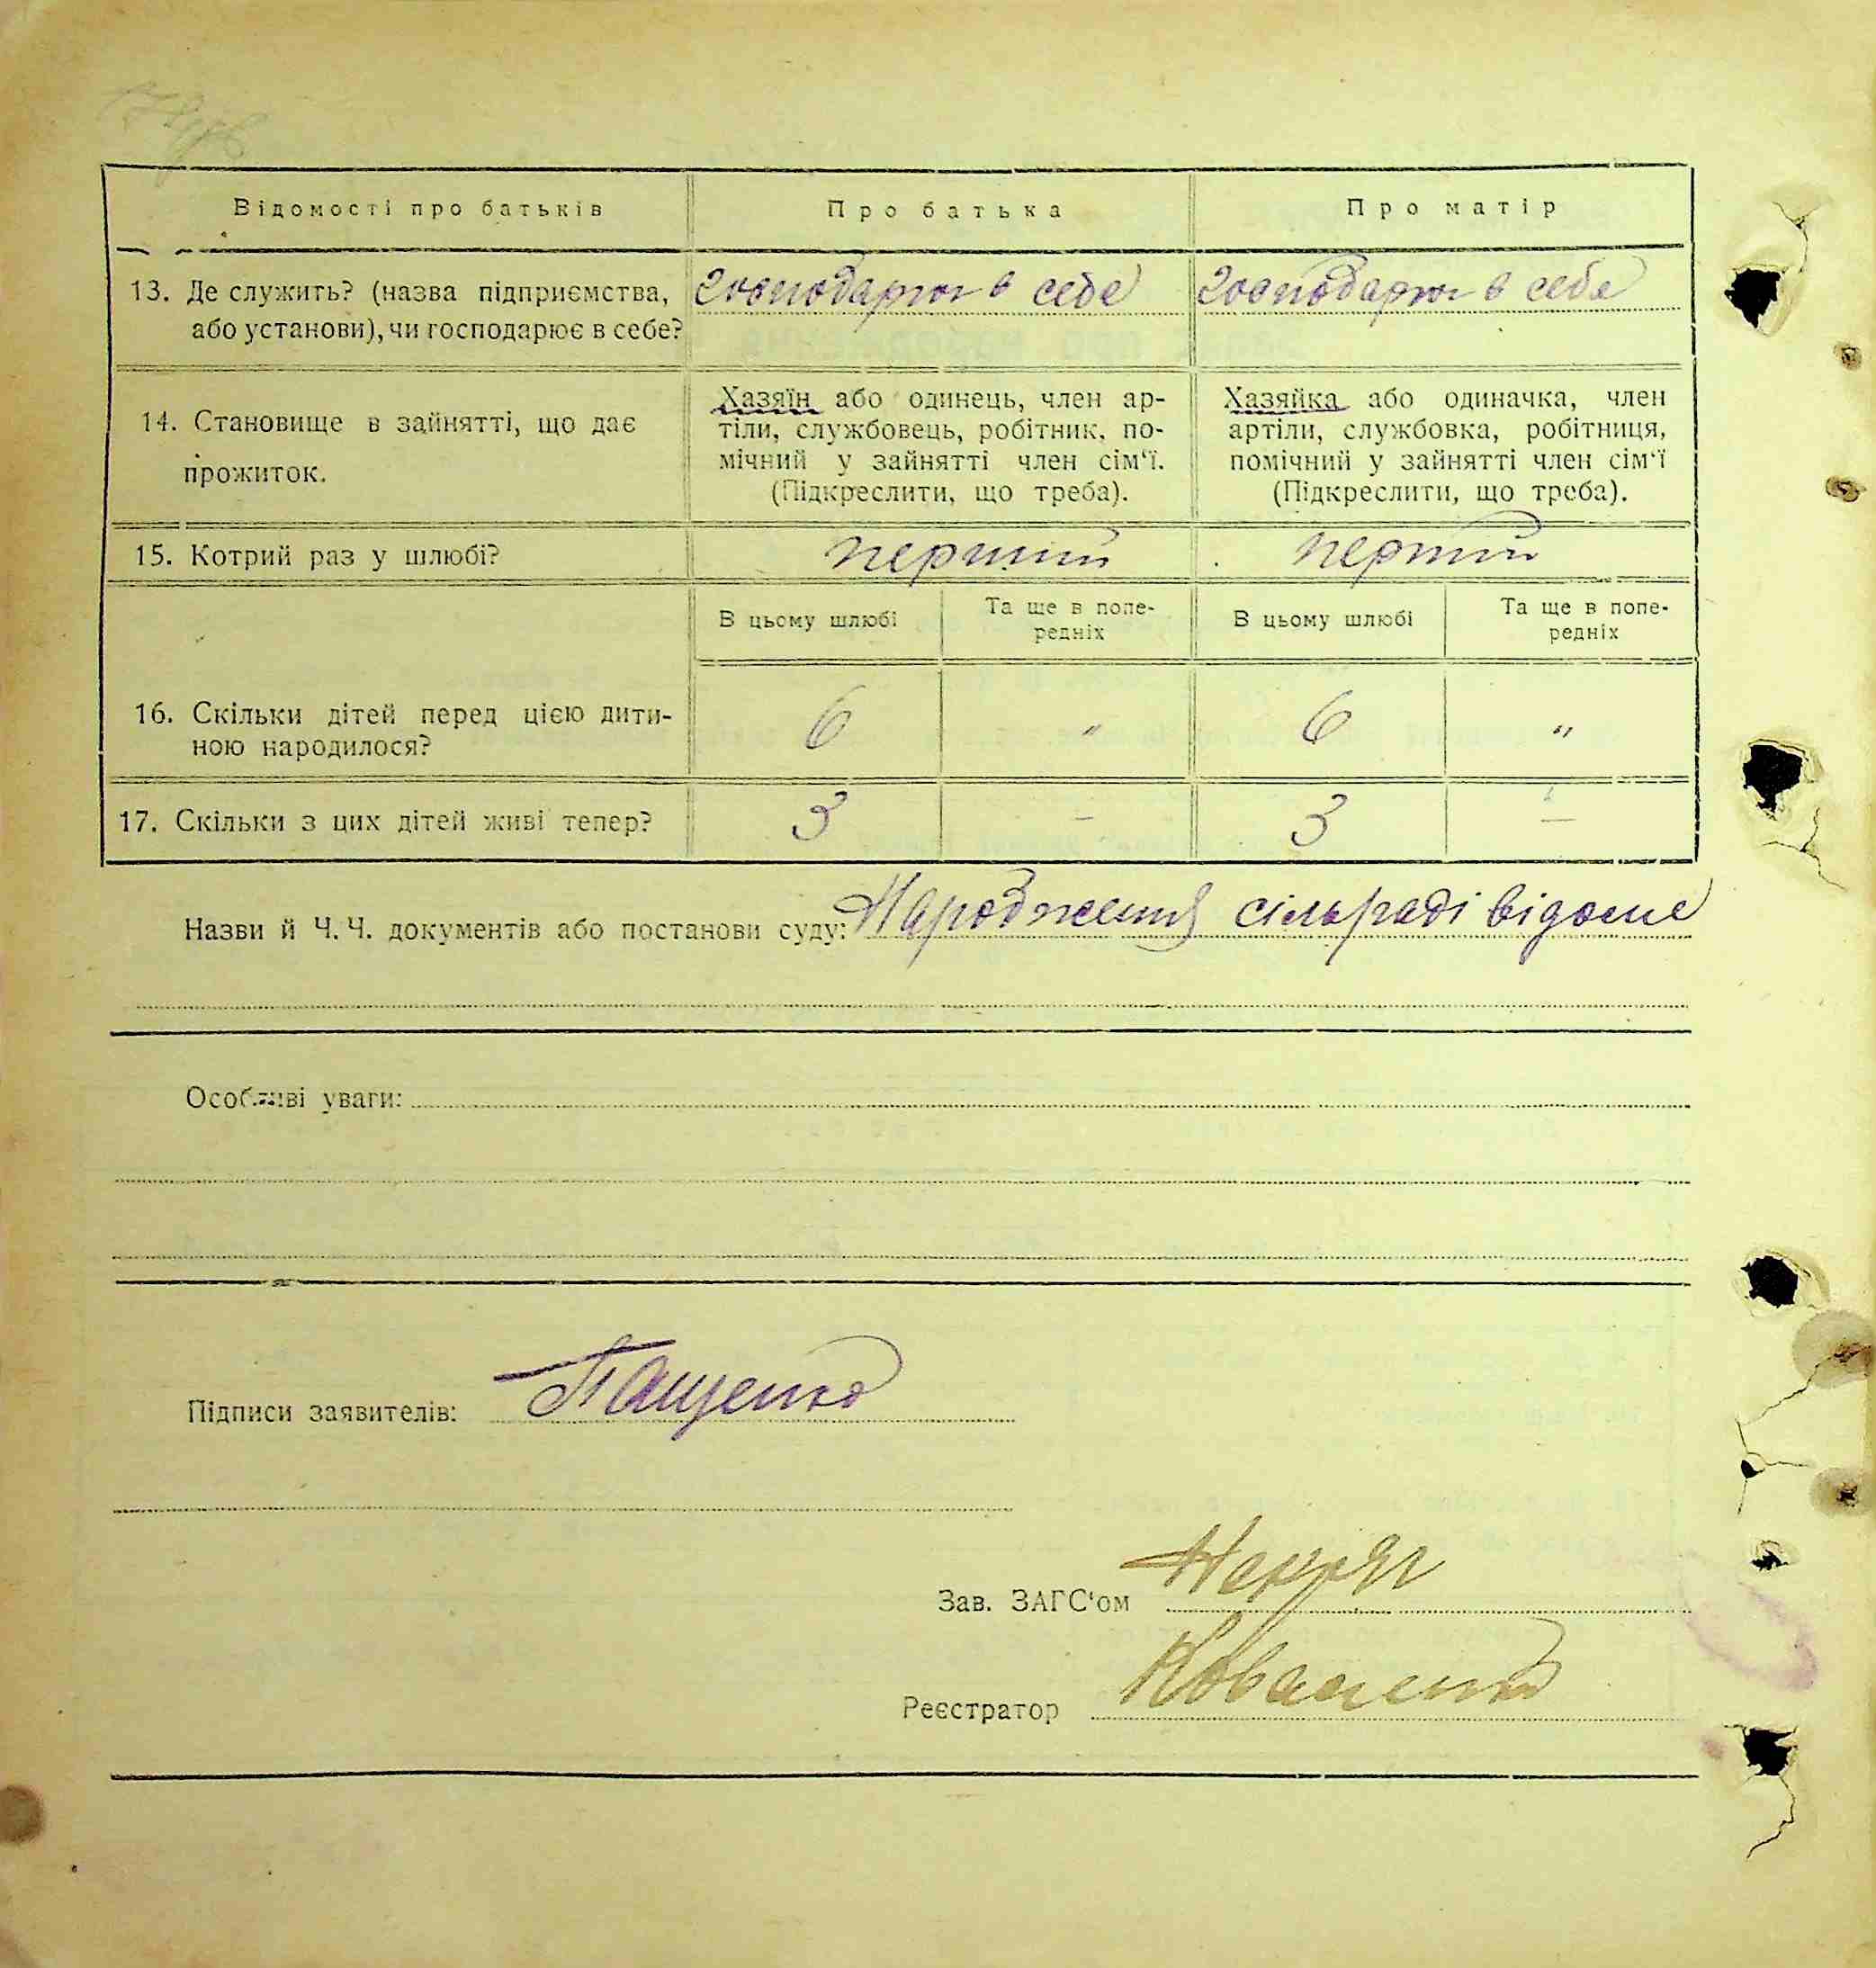 Відомості про батьків
Про батька
Про матір
13. Де служить? (назва підприємства, або установи), чи господарює в себе?
господарює в себе
господарює в себе
14. Становище в зайнятті, що дає прожиток.
Хазяїн або одинець, член ар-
тіли, службовець, робітник, по-
мічний у зайнятті член сім‘ї.
(Підкреслити, що треба).
Хазяйка або одиначка, член
артіли, службовка, робітниця,
помічний у зайнятті член сім‘ї
(Підкреслити, що треба).
15. Котрий раз у шлюбі?
перший
перший
В цьому шлюбі
Та ще в попе-
редніх
В цьому шлюбі
Та ще в попе-
редніх
16. Скільки дітей перед цією дити-
ною народилося?
6
"
6
"
17. Скільки з цих дітей живі тепер?
3
–
3
–
Назви й Ч. Ч. документів або постанови суду: Народження сільраді відоме
Особливі уваги:
Підписи заявителів: Пащенко
Зав. ЗАГС‘ом
Реєстратор Коваленко